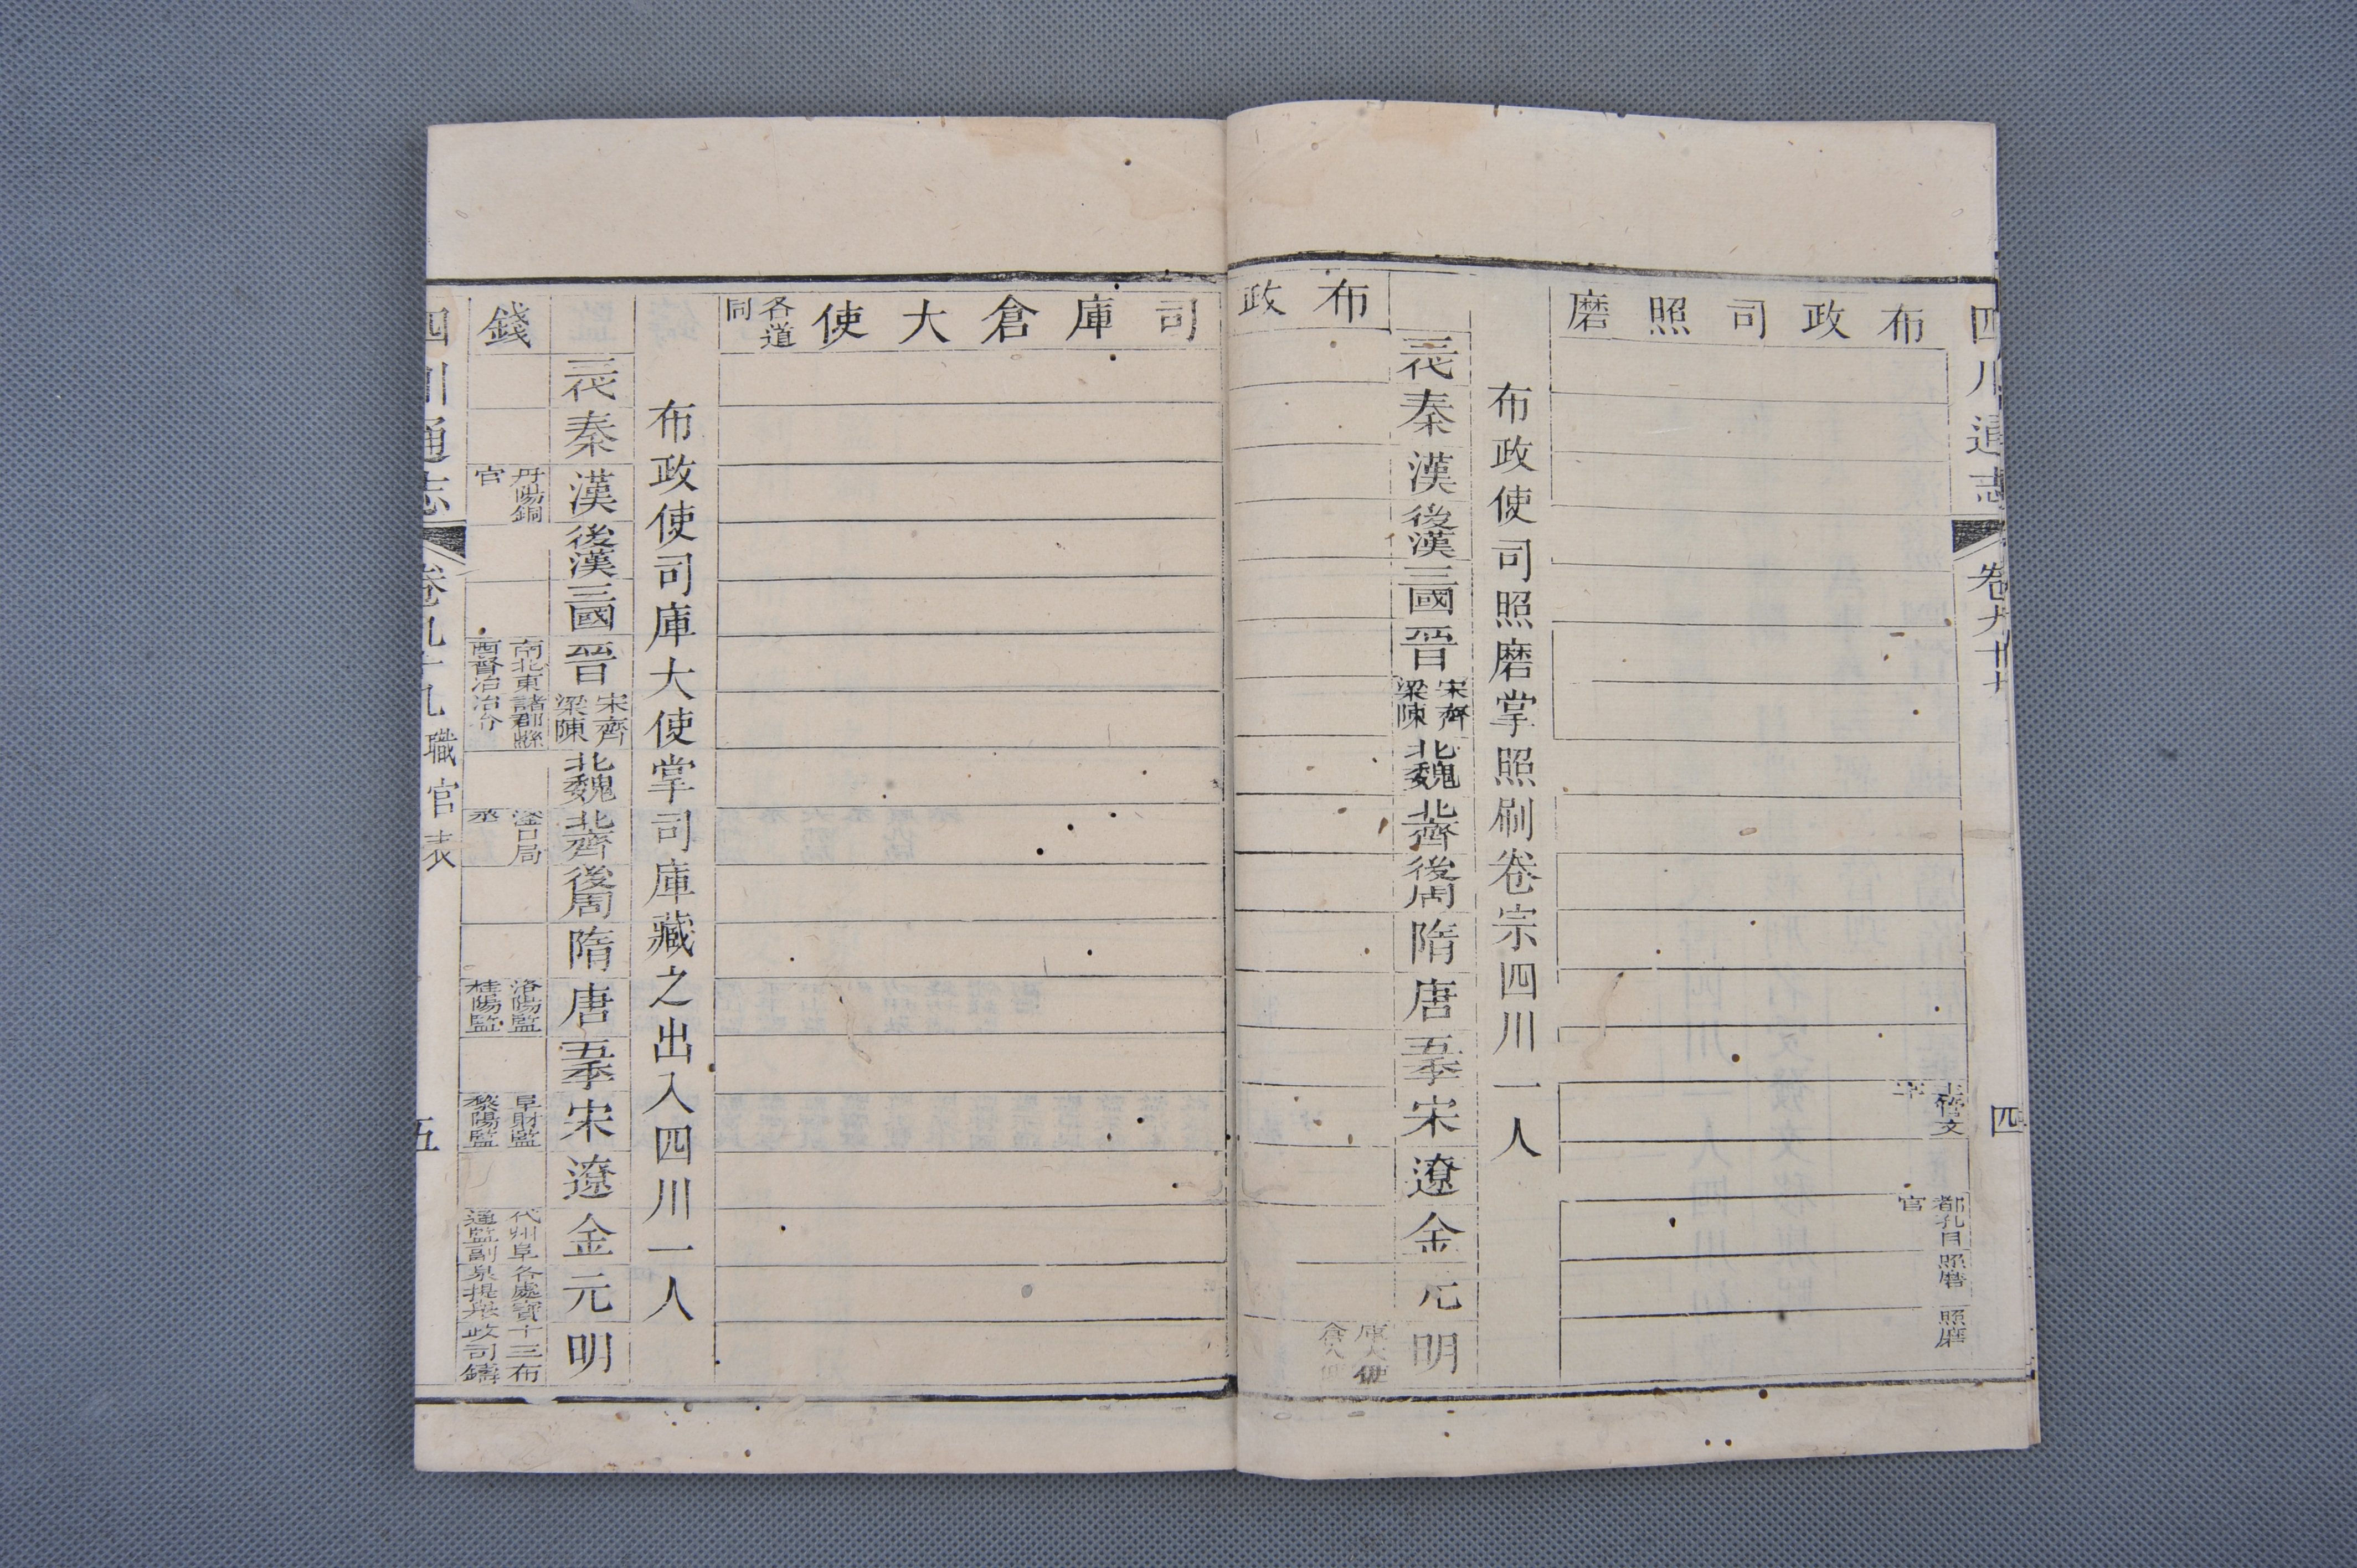 四川通志 卷九十九 四
布政司照磨
主管文字
都孔目官
照磨
照磨
布政使司照磨掌照刷卷宗四川一人
三代 秦 漢 後漢 三國 晉 宋齊梁陳 北魏 北齊 後周 隋 唐 五季 宋 遼 金 元 明
布政
庫大使
倉大使
司庫倉大使各道同
布政使司庫大使掌司庫藏之出入四川一人
三代 秦 漢 後漢 三國 晉 宋齊梁陳 北魏 北齊 後周 隋 唐 五季 宋 遼 金 元 明
錢
丹陽銅官
南北東西督冶
諸郡縣冶令
滏口局丞
洛陽監桂陽監
阜財監黎陽監
代州阜通監副
各處寶泉提舉
十三布政司鑄
四川通志 卷九十九 職官表 五